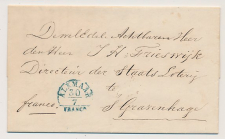 Den Wel Edel Achtbaren Heer
den Heer J H Frieswijk
Directeur der Staats Loterij
te
franco
S Gravenhage
ALKMAAR
30
7
FRANCO